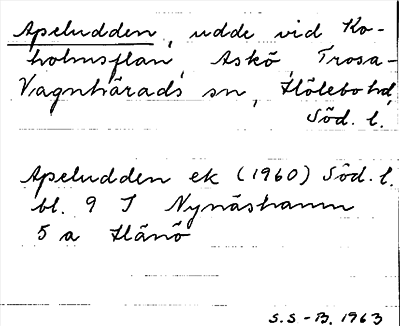 Apeludden, udde vid Ko-
holmsflan, Askö, Trosa-
Vagnhärads sn, Hölebo hd,
Söd. l.
Apeludden ek (1960) Söd. l.
bl. 9 I Nynäshamn
5 a Hånö
S.S-B. 1963